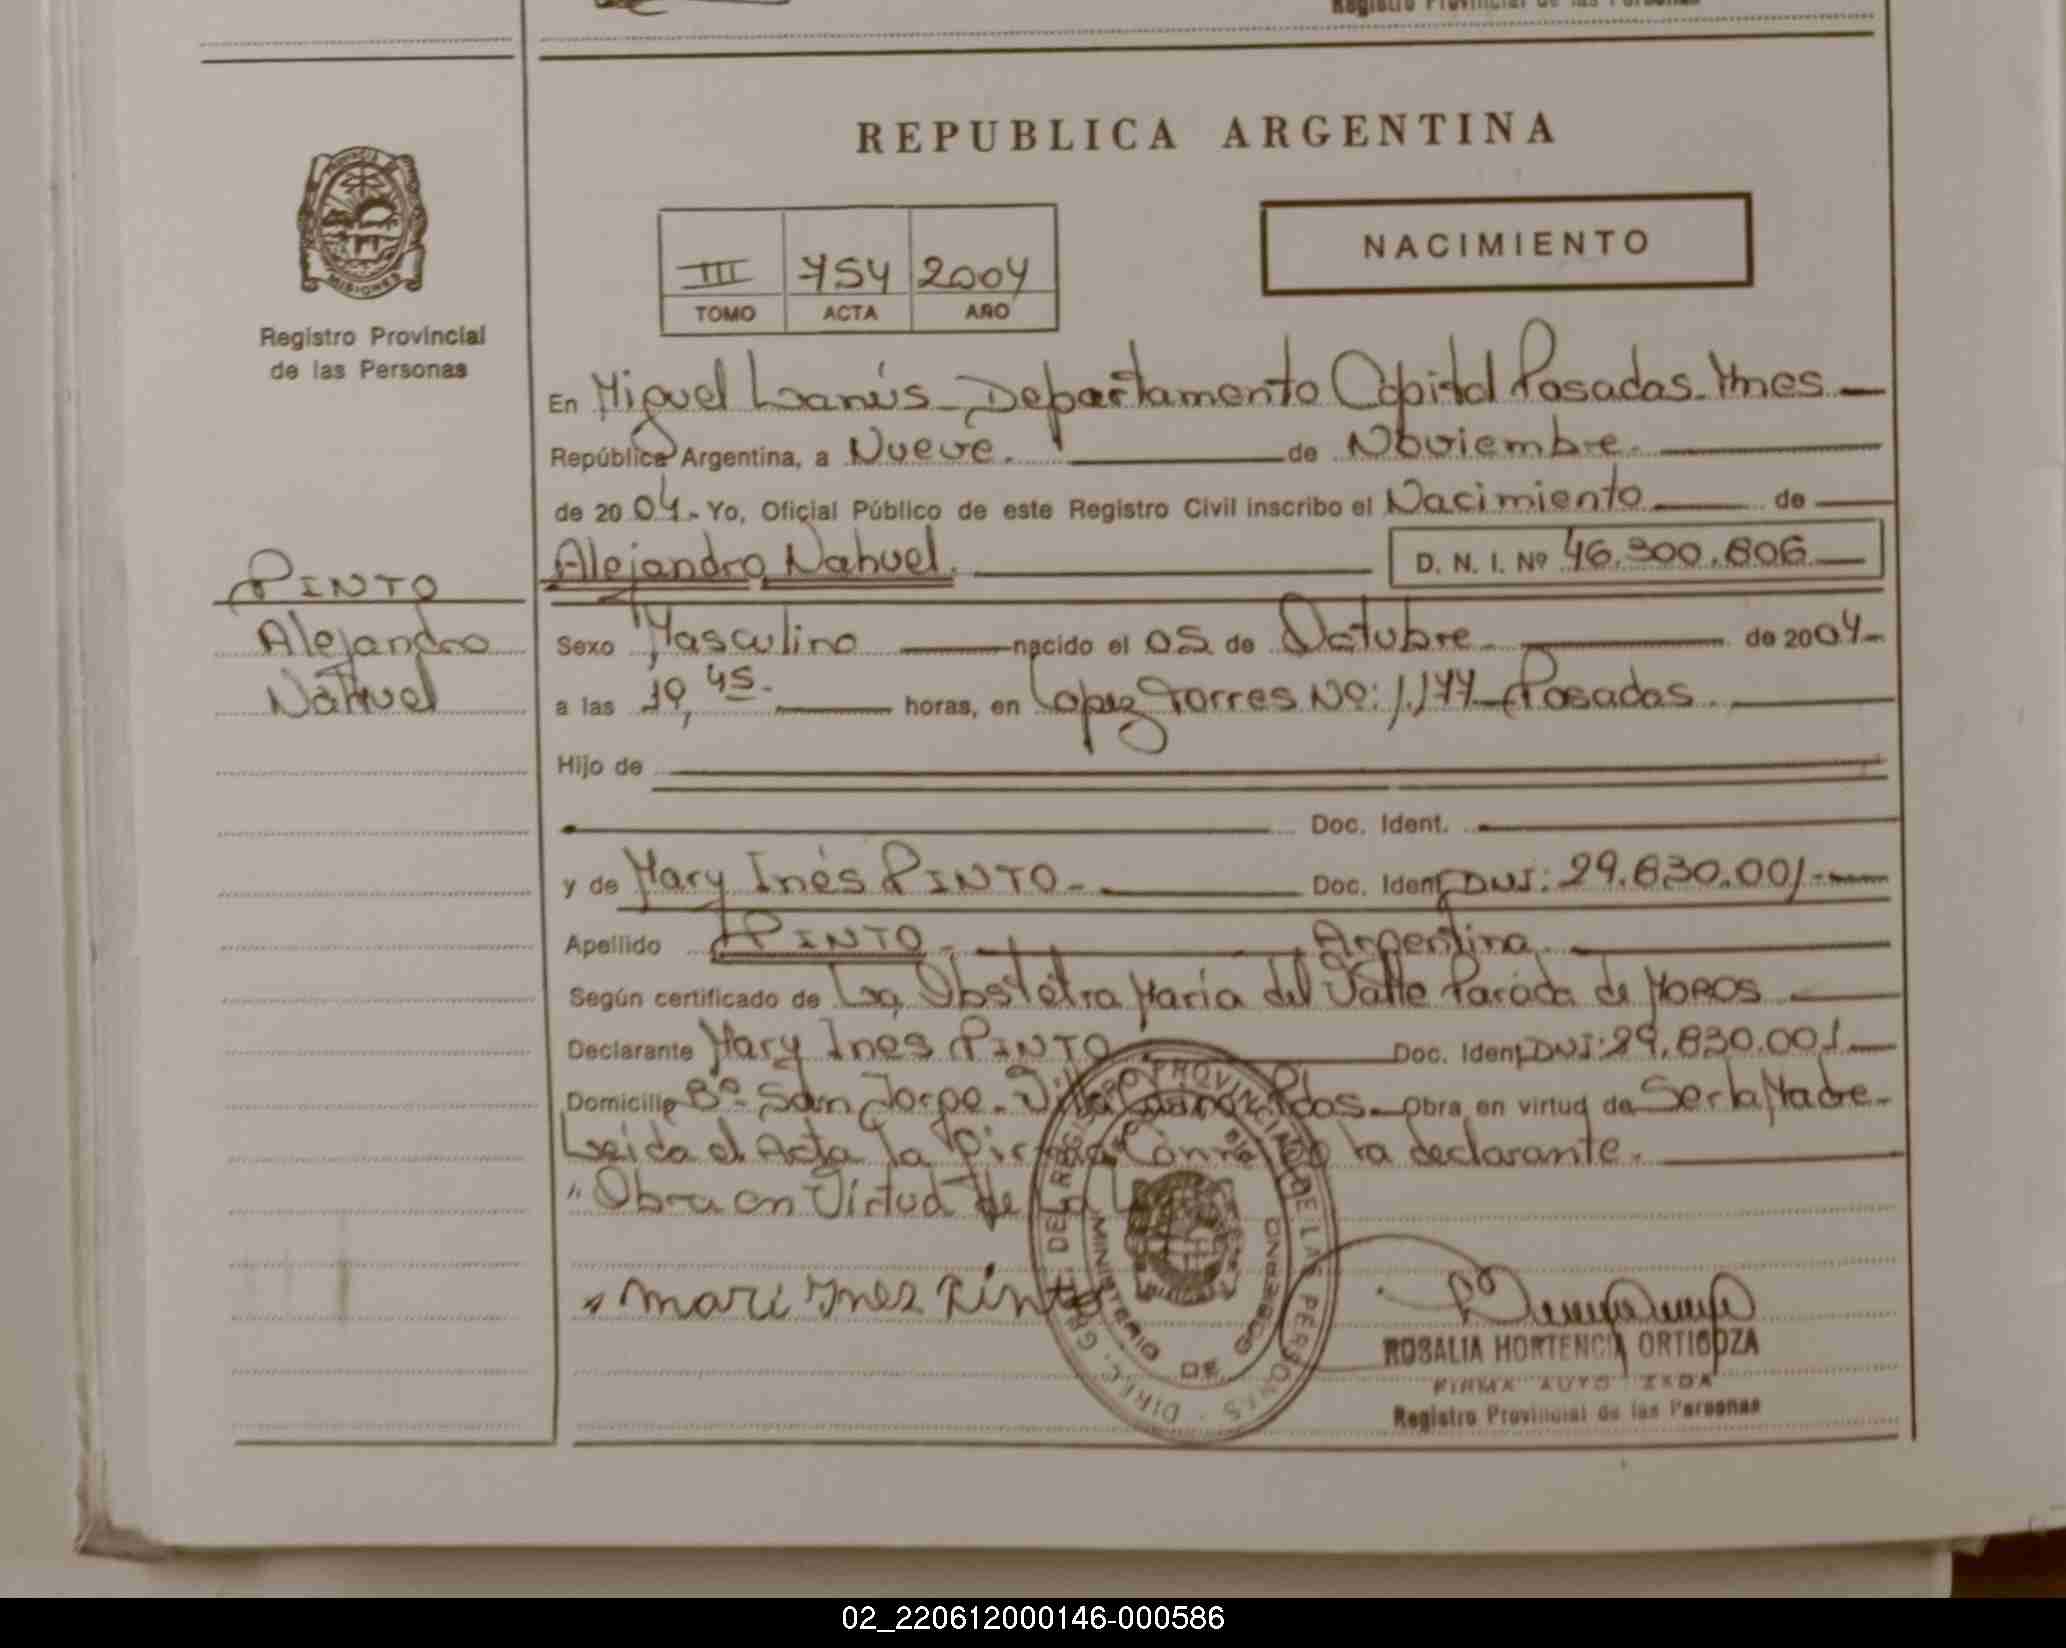 Registro Provincial de las Personas
REPUBLICA ARGENTINA
PROVINCIA
MISIONES
Registro Provincial
de las Personas
III 754 2004
TOMO ACTA AÑO
NACIMIENTO
En Miguel Lanús - Departamento Capital Posadas - Mnes
República Argentina, a Nueve. de Noviembre.
de 2004.- Yo, Oficial Público de este Registro Civil inscribo el Nacimiento de
Alejandro Nahuel. D. N. I. Nº 46.300.606
PINTO
Alejandro
Nahuel
Sexo Masculino nacido el 05 de Octubre de 2004.-
a las 19,45. horas, en Lopez Torres No: 1.177 - Posadas.
Hijo de
Doc. Ident.
y de Mary Inés PINTO - Doc. Ident. DNI: 29.830.001.-
Apellido PINTO - Argentina.
Según certificado de La Obstetra María del Valle Parada de MOROS
Declarante Mary Inés PINTO Doc. Ident. DNI: 29.830.001.
Domicilio Bº San Jorge - Villa Pdas. Obra en virtud de Ser la Madre.-
Leida el Acta la Firma Conmigo la declarante.
"Obra en Virtud de La
mari Ines Pinto
DIREC. GRAL. DEL REGISTRO PROVINCIAL DE LAS PERSONAS
MINISTERIO DE GOBIERNO
MISIONES
ROSALIA HORTENCIA ORTIGOZA
FIRMA AUTORIZADA
Registro Provincial de las Personas
02_220612000146-000586